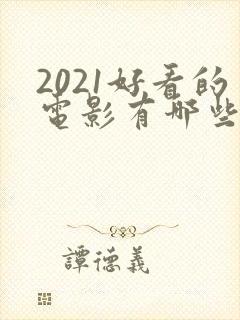 2021好看的
电影有哪些
譚德義